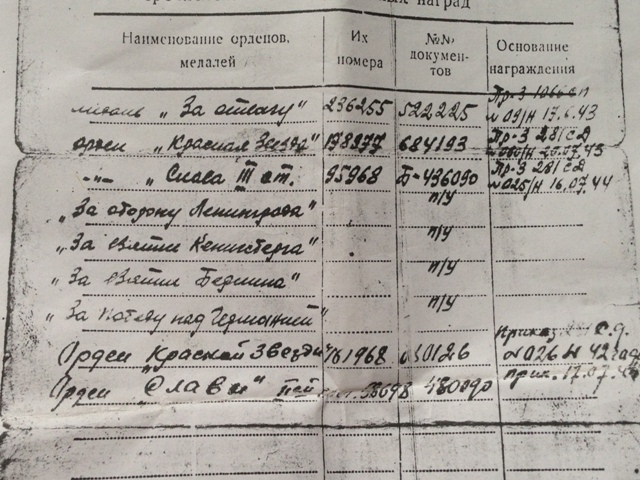 наград
Наименование орденов, медалей
Их номера
№№ документов
Основание награждения
медаль „За отвагу" 236255 522225 Пр-з 1066 сп №09/Н 17.6.43
орден „Красная Звезда" 684193 Пр-з 281 сд 20.07.43
-"- „Слава III ст. 95968 Б-436090 Пр-з 281 сд №025/Н 16.07.44
„За оборону Ленинграда" п/у
„За взятие Кенигсберга" п/у
„За взятие Берлина" п/у
„За победу над Германией" п/у
Орден „Красной Звезды 030126 Приказ с.д. №026 Н 42
Орден „Славы" 480090 прик. 17.07.